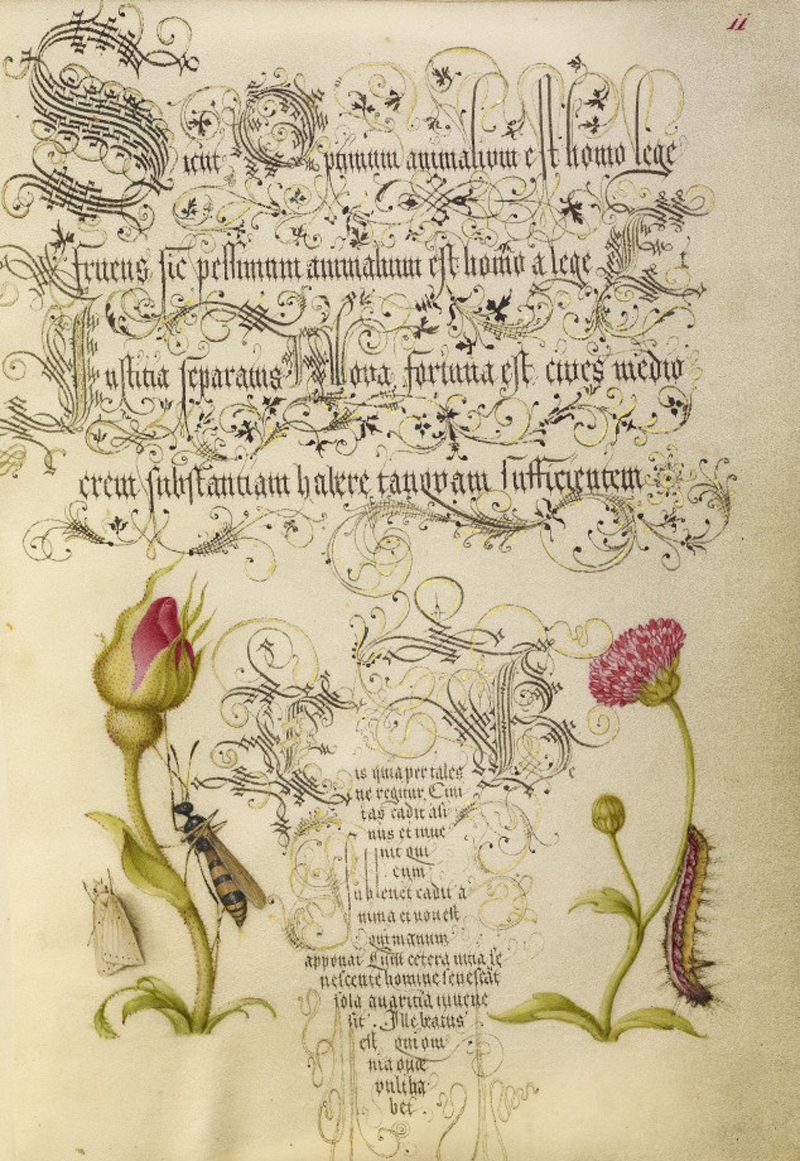 ii
Sicut Optimum animalium est homo lege
fruens sic pessimum animalium est homo a lege Et
Iustitia separatus Nova fortuna est cives medio
crem substantiam habere tanquam sufficientem
is quia per tales
ne regitur Civi
tas cadit asi
nus et inve
nit qui
eum
sublevet cadit a
nima et non est
qui manum
apponat Cum cetera vitia se
nescente homine senescāt
sola avaritia iuvene
sit . Ille beatus
est qui om
nia quæ
vult ha
bet .